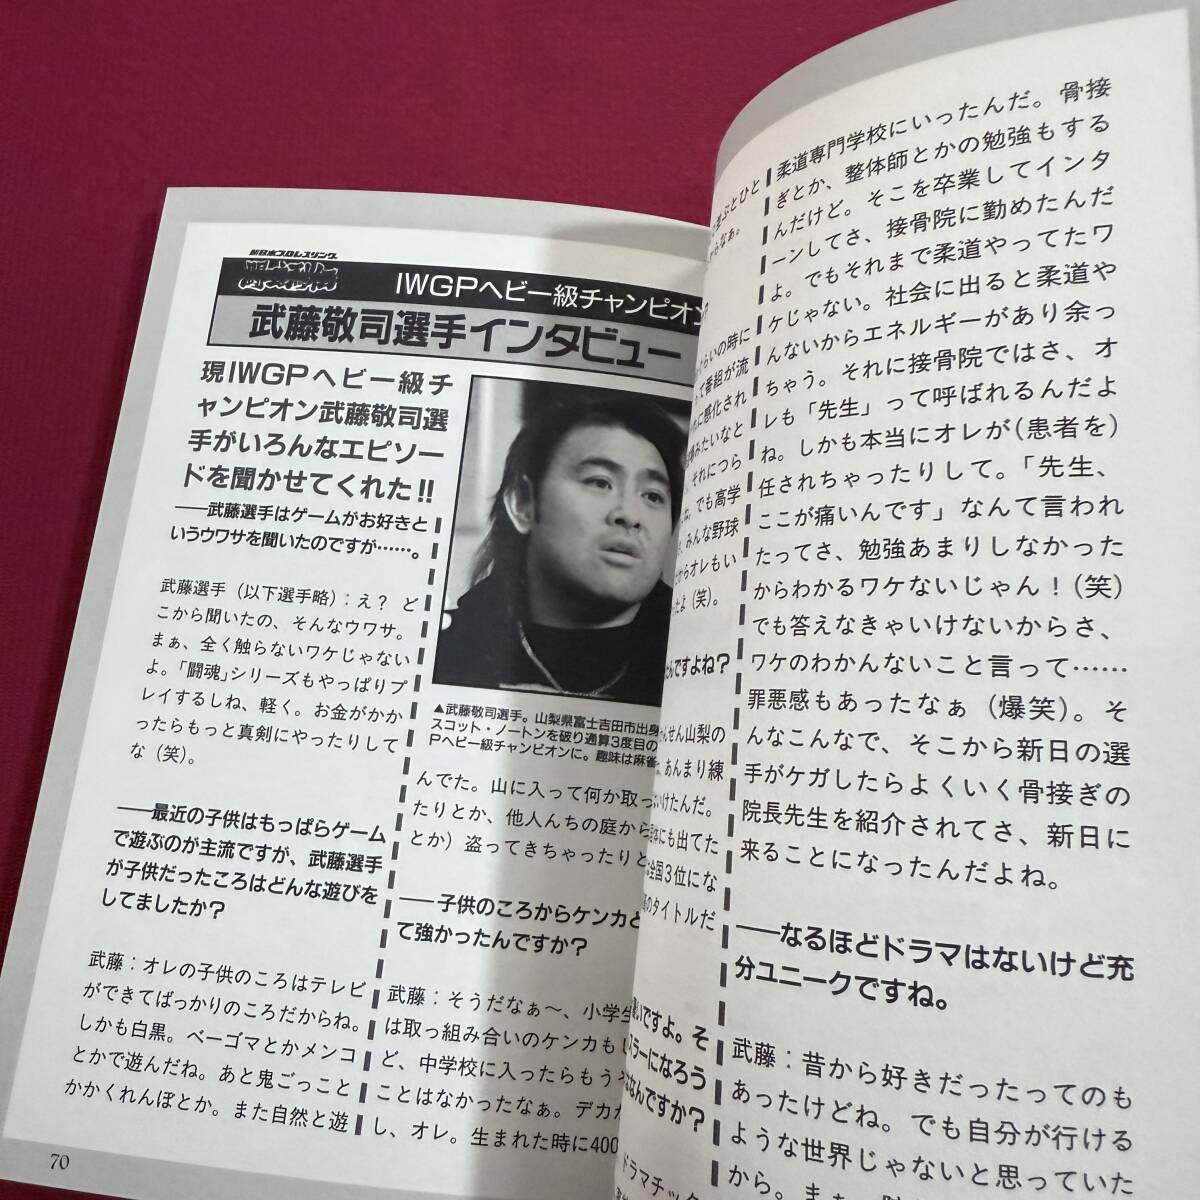 新日本プロレスリング
闘魂烈伝
IWGPヘビー級チャンピオン
武藤敬司選手インタビュー
現IWGPヘビー級チ
ャンピオン武藤敬司選
手がいろんなエピソー
ドを聞かせてくれた!!
――武藤選手はゲームがお好きと
いうウワサを聞いたのですが……。
武藤選手(以下選手略):え? ど
こから聞いたの、そんなウワサ。
まぁ、全く触らないワケじゃない
よ。「闘魂」シリーズもやっぱりプ
レイするしね、軽く。お金がかか
ったらもっと真剣にやったりして
な(笑)。
――最近の子供はもっぱらゲーム
で遊ぶのが主流ですが、武藤選手
が子供だったころはどんな遊びを
してましたか?
武藤:オレの子供のころはテレビ
ができてばっかりのころだからね。
しかも白黒。ベーゴマとかメンコ
とかで遊んだね。あと鬼ごっこと
かかくれんぼとか。また自然と遊
▲武藤敬司選手。山梨県富士吉田市出身
スコット・ノートンを破り通算3度目の
Pヘビー級チャンピオンに。趣味は麻雀
んでた。山に入って何か取っ
たりとか、他人んちの庭から
とか)盗ってきちゃったりと
――子供のころからケンカと
て強かったんですか?
武藤:そうだなぁ〜、小学生
は取っ組み合いのケンカもい
ど、中学校に入ったらもうそ
ことはなかったなぁ。デカか
し、オレ。生まれた時に400
70
ぶとひと
らなぁ。
らいの時に
て番組が流
に感化され
みたいなと
それにつら
でも高学
みんな野球
からオレもい
たよ(笑)。
んですよね?
せん山梨の
、あんまり練
いけたんだ。
にも出てた
全国3位にな
のタイトルだ
いですよ。そ
スラーになろう
なんですか?
ドラマチック
柔道専門学校にいったんだ。骨接
ぎとか、整体師とかの勉強もする
んだけど。そこを卒業してインタ
ーンしてさ、接骨院に勤めたんだ
よ。でもそれまで柔道やってたワ
ケじゃない。社会に出ると柔道や
んないからエネルギーがあり余っ
ちゃう。それに接骨院ではさ、オ
レも「先生」って呼ばれるんだよ
ね。しかも本当にオレが(患者を)
任されちゃったりして。「先生、
ここが痛いんです」なんて言われ
たってさ、勉強あまりしなかった
からわかるワケないじゃん!(笑)
でも答えなきゃいけないからさ、
ワケのわかんないこと言って……
罪悪感もあったなぁ(爆笑)。そ
んなこんなで、そこから新日の選
手がケガしたらよくいく骨接ぎの
院長先生を紹介されてさ、新日に
来ることになったんだよね。
――なるほどドラマはないけど充
分ユニークですね。
武藤:昔から好きだったってのも
あったけどね。でも自分が行ける
ような世界じゃないと思っていた
から。